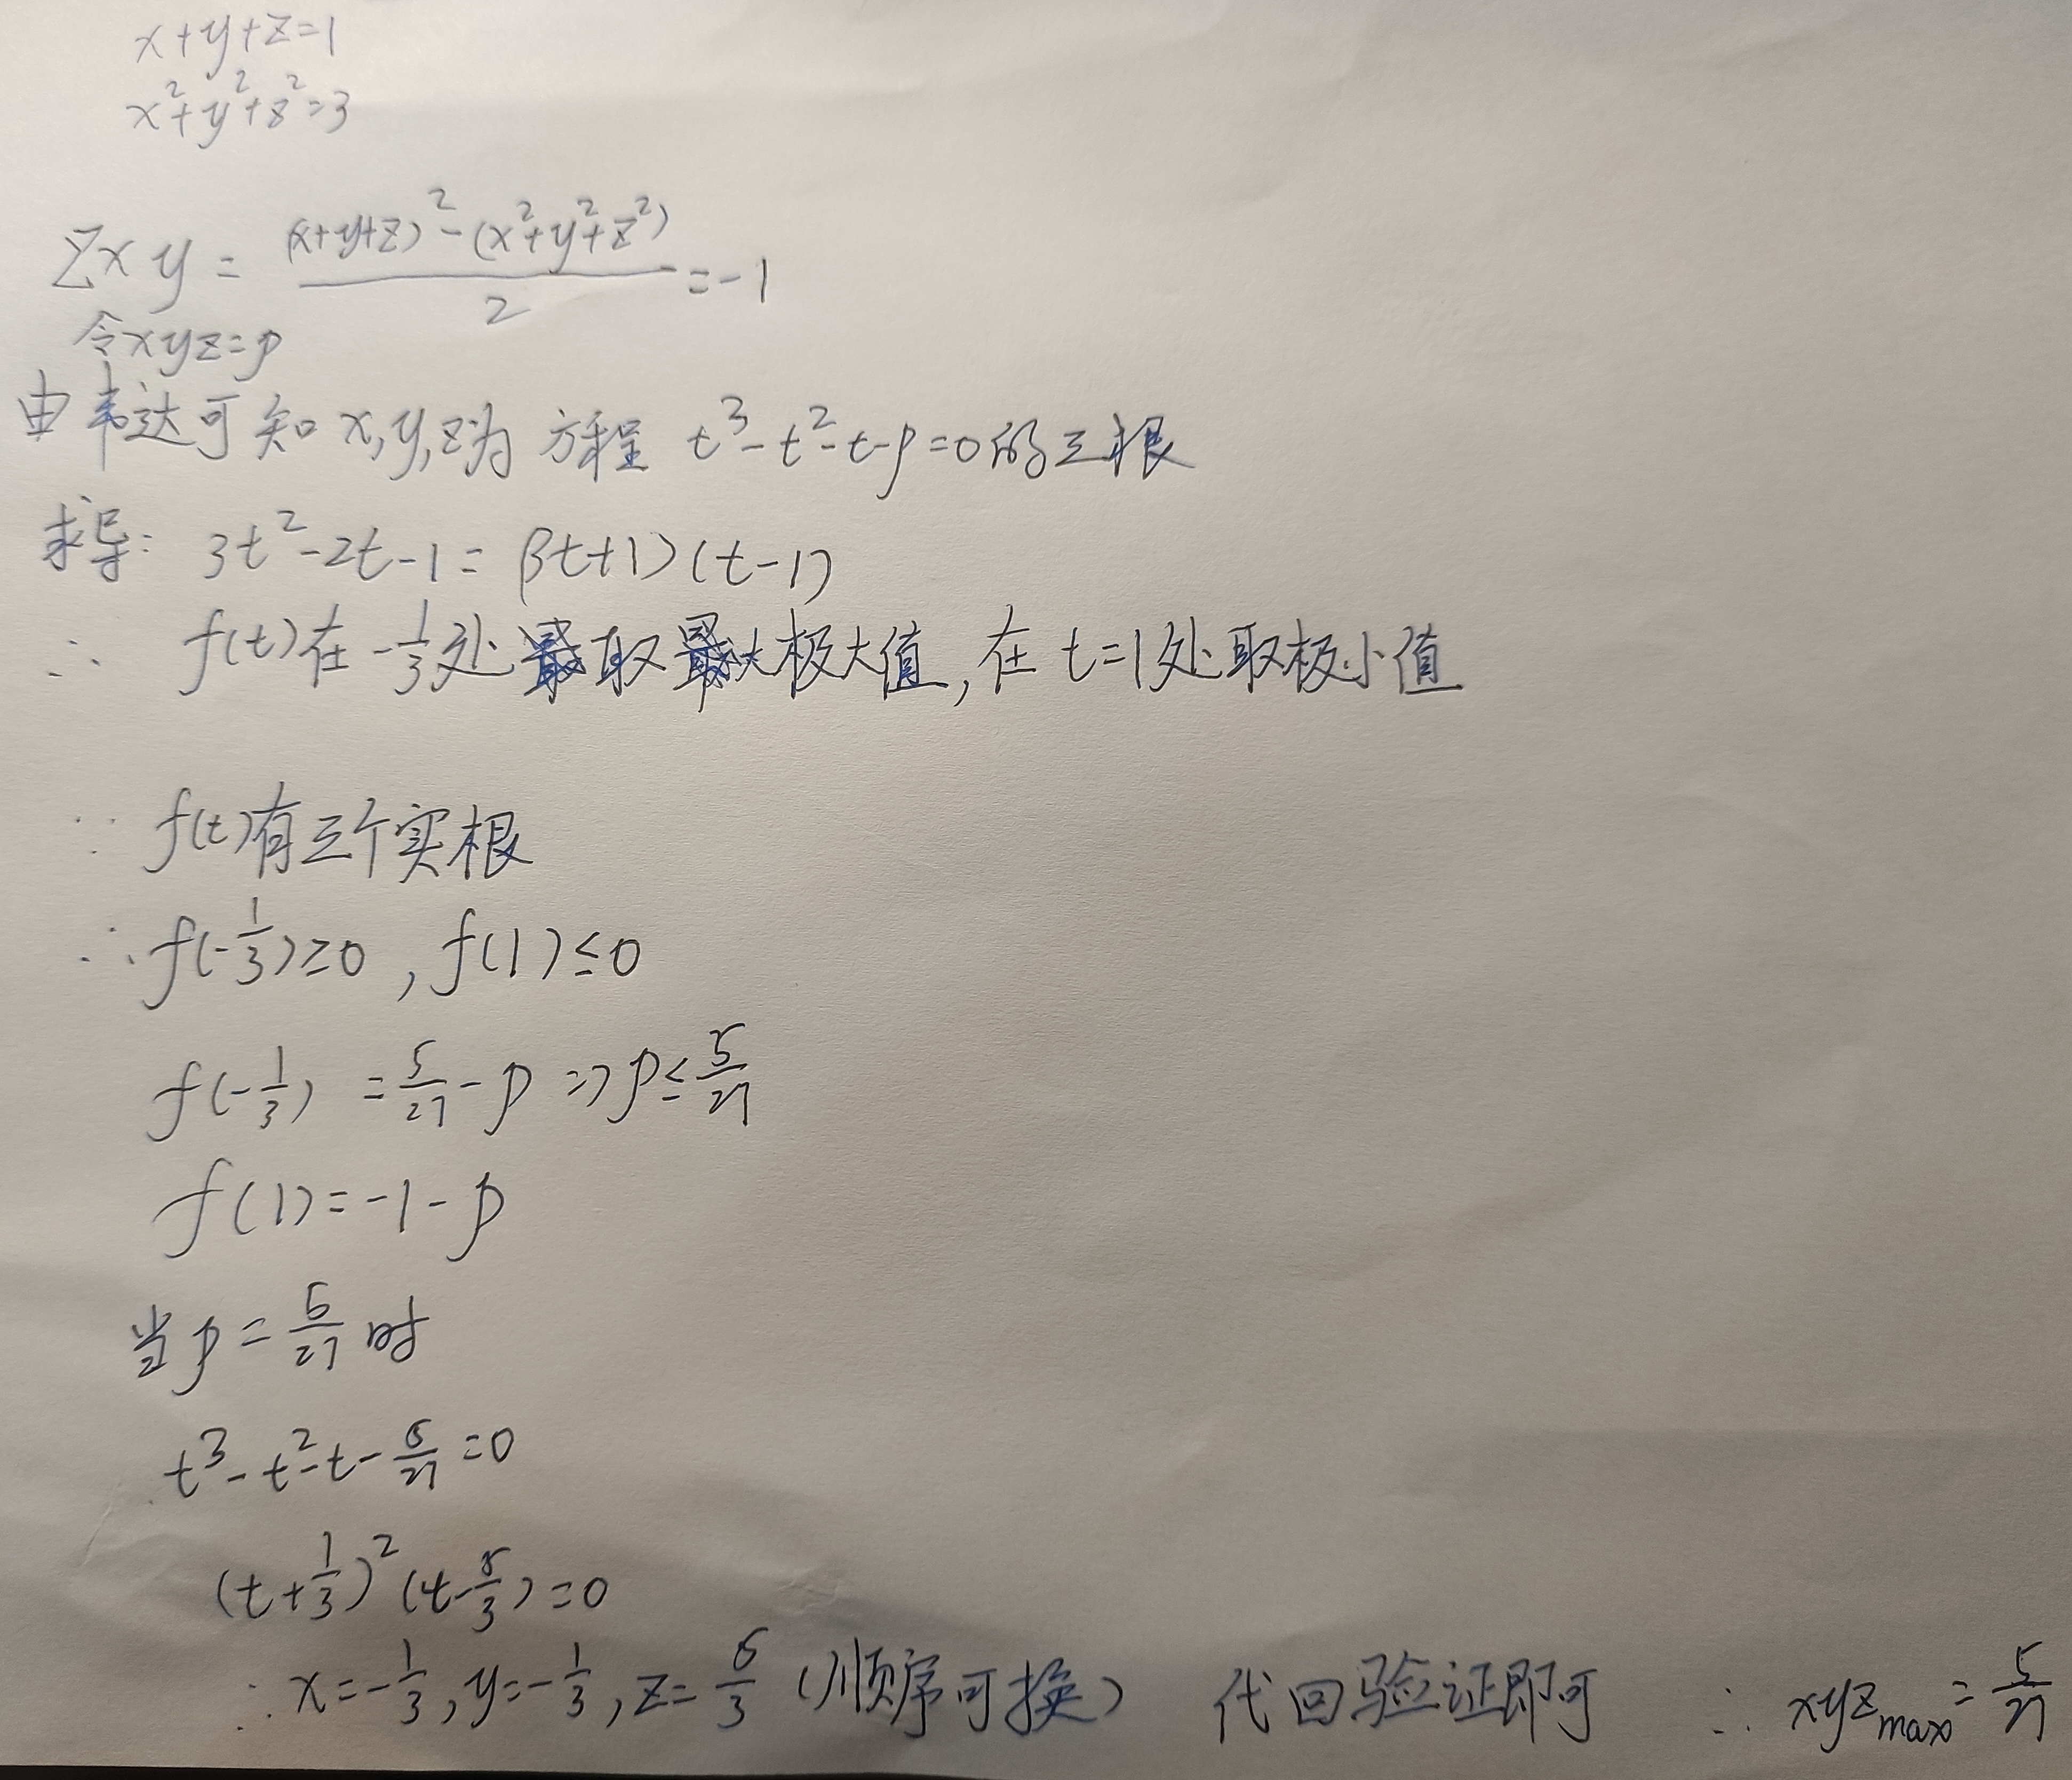 x+y+z=1
x²+y²+z²=3
Σxy = ((x+y+z)²-(x²+y²+z²))/2 = -1
令xyz=p
由韦达可知x,y,z为方程 t³-t²-t-p=0的三根
求导: 3t²-2t-1=(3t+1)(t-1)
∴ f(t)在-1/3处取极大值,在t=1处取极小值
∵ f(t)有三个实根
∴ f(-1/3)≥0, f(1)≤0
f(-1/3) = 5/27 - p => p≤5/27
f(1)=-1-p
当p=5/27时
t³-t²-t-5/27=0
(t+1/3)²(t-5/3)=0
∴ x=-1/3, y=-1/3, z=5/3 (顺序可换) 代回验证即可 ∴ xyz_max=5/27